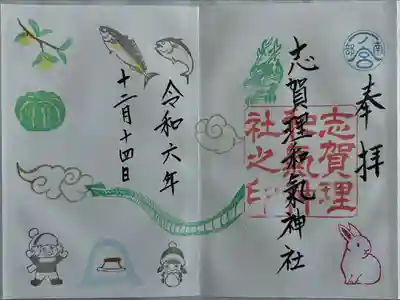 奉拝
志賀理和氣神社
志賀理
和氣神
社之印
令和六年
十二月十四日